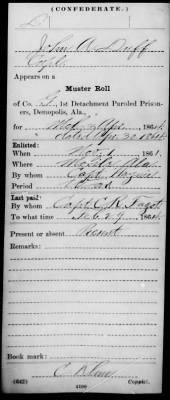 (CONFEDERATE.)
D
John A Duff
Corpl
Appears on a
Muster Roll
of Co. 1st Detachment Paroled Prisoners, Demopolis, Ala.,
for Apr 1864
dated Apr 30 1864
Enlisted:
When 1861.
Where Ala
By whom Capt
Period
Last paid:
By whom Capt C. K.
To what time Feb 29, 1864.
Present or absent Present
Remarks:
Book mark:
(642)
4100
Copyist.